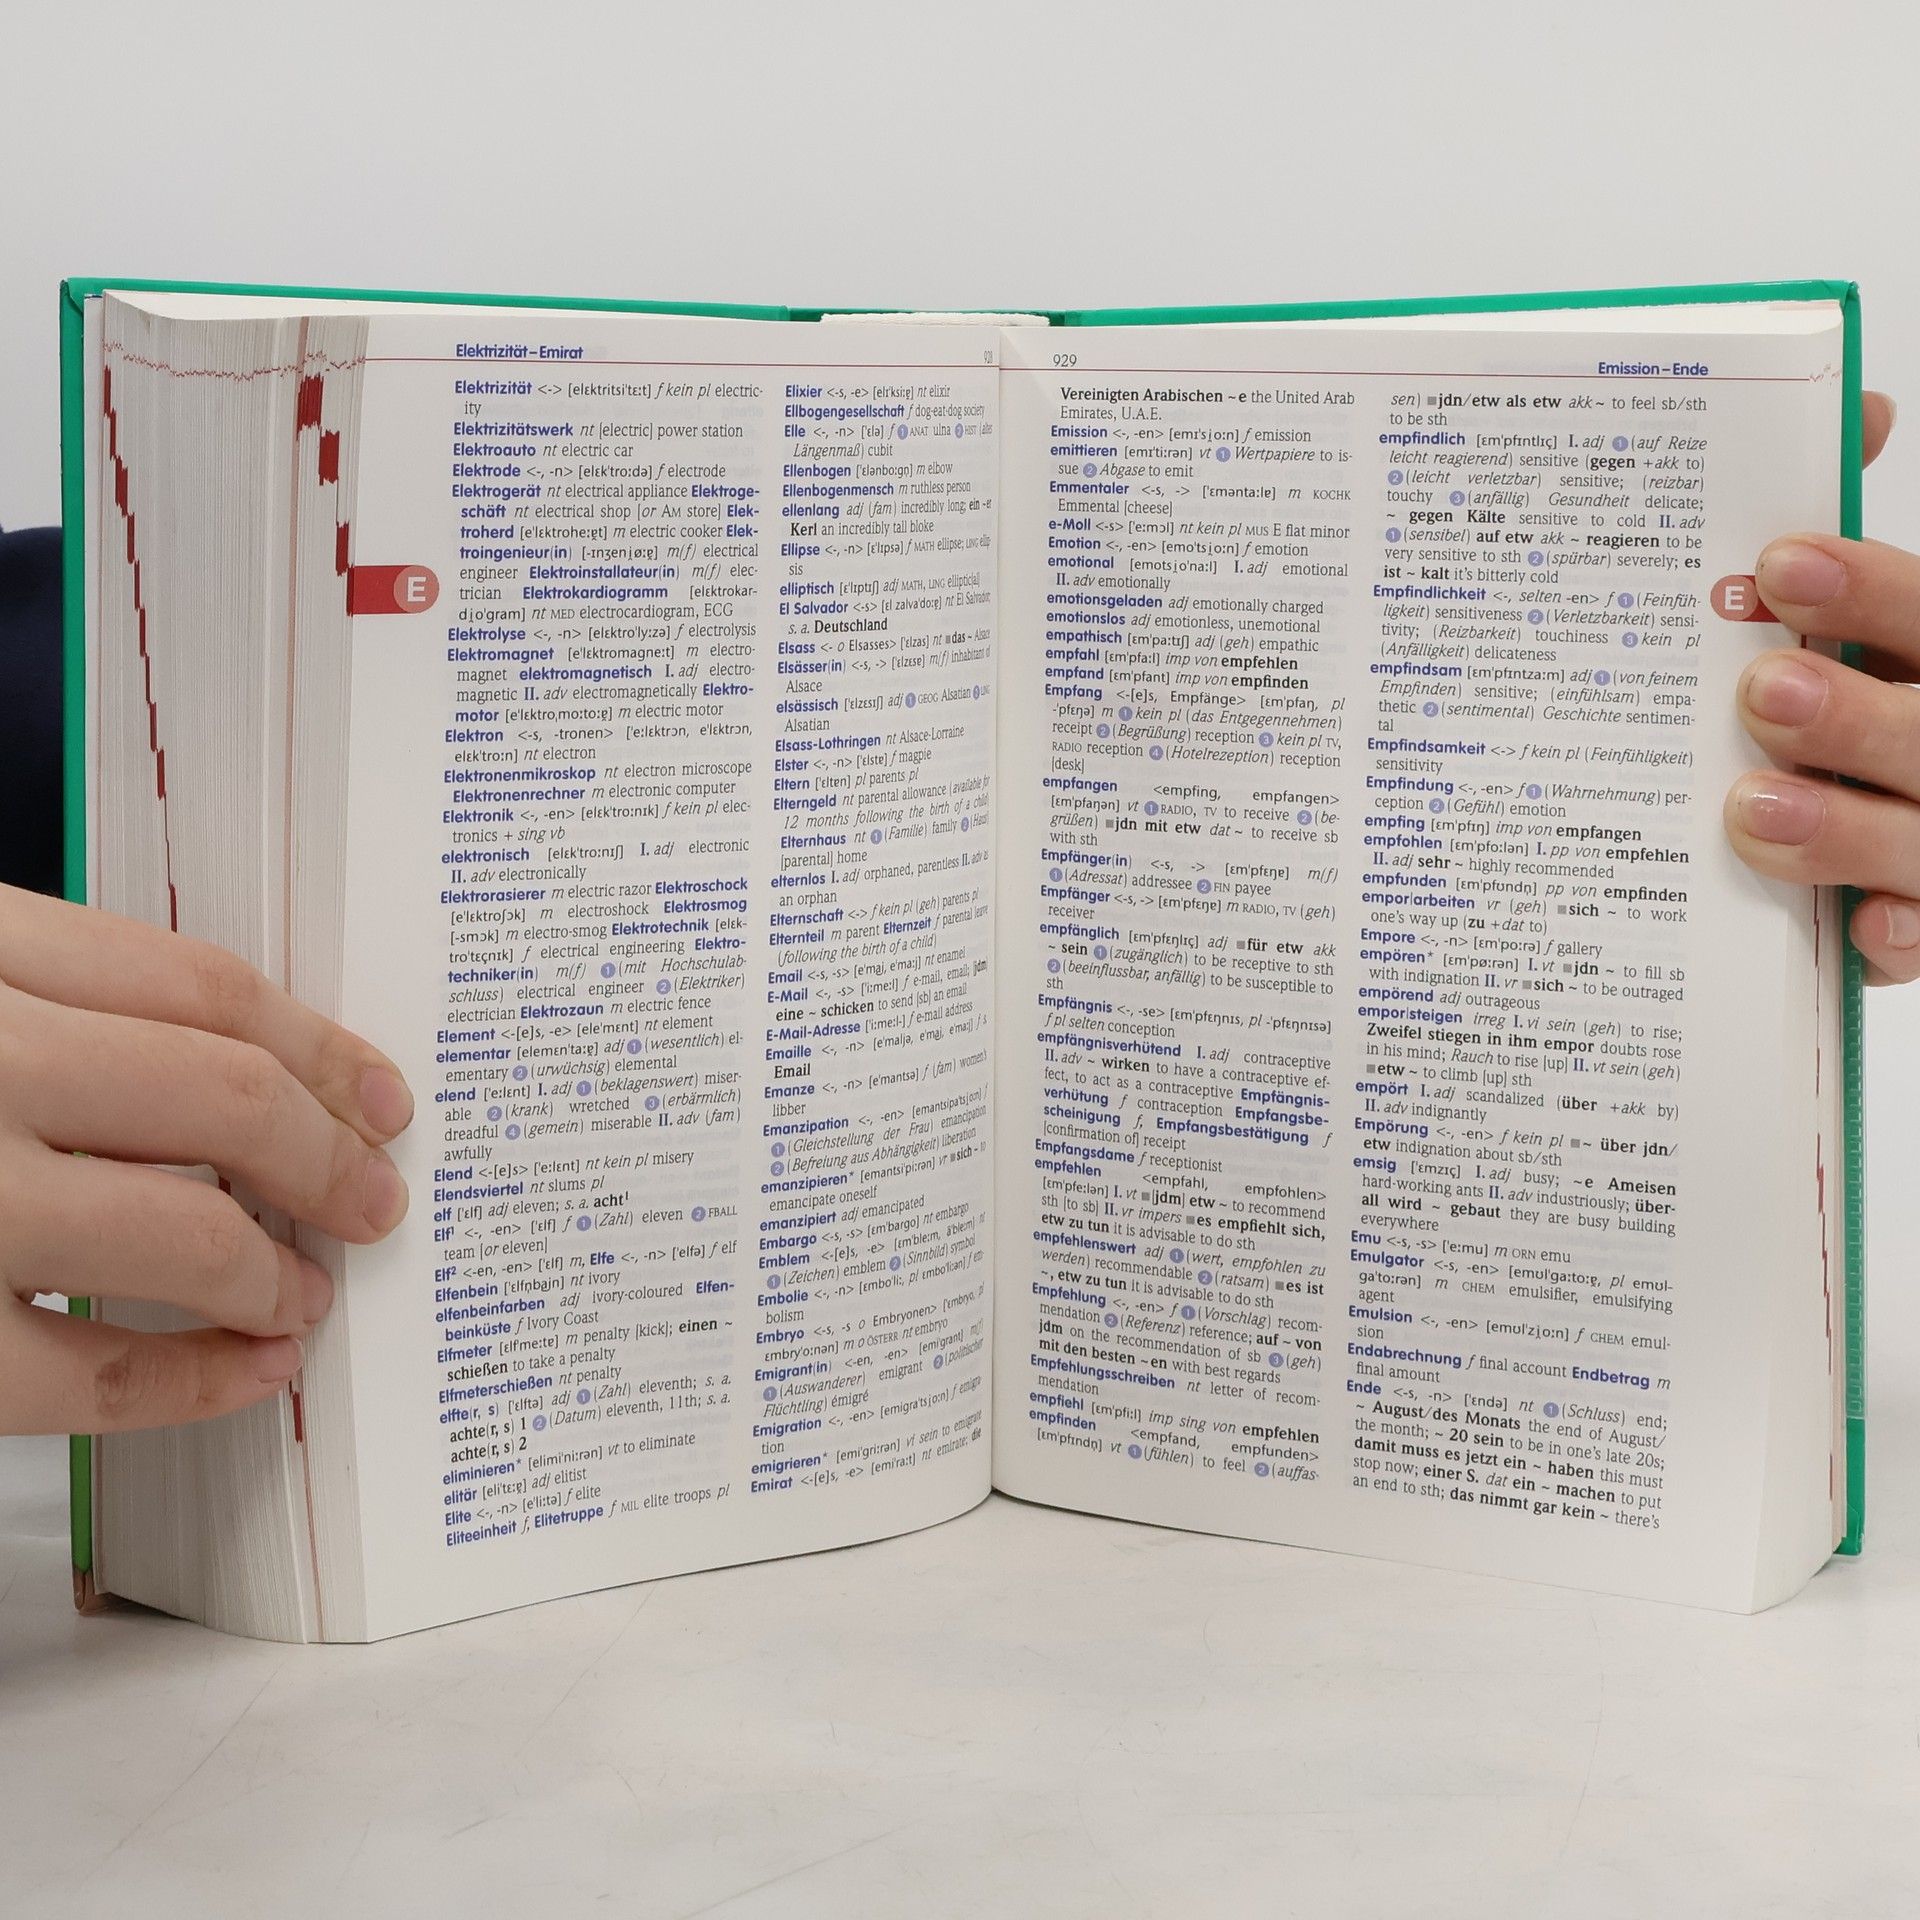 Elektrizität–Emirat
928
Elektrizität <-> [elɛktritsi'tɛ:t] f kein pl electric-
ity
Elektrizitätswerk nt [electric] power station
Elektroauto nt electric car
Elektrode <-, -n> [elɛk'tro:də] f electrode
Elektrogerät nt electrical appliance Elektroge-
schäft nt electrical shop [or AM store] Elek-
troherd [e'lɛktrohe:ɐ̯t] m electric cooker Elek-
troingenieur(in) [-ɪnʒeni̯ø:ɐ̯] m(f) electrical
engineer Elektroinstallateur(in) m(f) elec-
trician Elektrokardiogramm [elɛktrokar-
di̯o'gram] nt MED electrocardiogram, ECG
Elektrolyse <-, -n> [elɛktro'ly:zə] f electrolysis
Elektromagnet [e'lɛktromagne:t] m electro-
magnet elektromagnetisch I. adj electro-
magnetic II. adv electromagnetically Elektro-
motor [e'lɛktro,mo:to:ɐ̯] m electric motor
Elektron <-s, -tronen> ['e:lɛktrɔn, e'lɛktrɔn,
elɛk'tro:n] nt electron
Elektronenmikroskop nt electron microscope
Elektronenrechner m electronic computer
Elektronik <-, -en> [elɛk'tro:nɪk] f kein pl elec-
tronics + sing vb
elektronisch [elɛk'tro:nɪʃ] I. adj electronic
II. adv electronically
Elektrorasierer m electric razor Elektroschock
[e'lɛktroʃɔk] m electroshock Elektrosmog
[-smɔk] m electro-smog Elektrotechnik [elɛk-
tro'tɛçnɪk] f electrical engineering Elektro-
techniker(in) m(f) 1 (mit Hochschulab-
schluss) electrical engineer 2 (Elektriker)
electrician Elektrozaun m electric fence
Element <-[e]s, -e> [ele'mɛnt] nt element
elementar [elemɛn'ta:ɐ̯] adj 1 (wesentlich) el-
ementary 2 (urwüchsig) elemental
elend ['e:lɛnt] I. adj 1 (beklagenswert) miser-
able 2 (krank) wretched 3 (erbärmlich)
dreadful 4 (gemein) miserable II. adv (fam)
awfully
Elend <-[e]s> ['e:lɛnt] nt kein pl misery
Elendsviertel nt slums pl
elf ['ɛlf] adj eleven; s. a. acht¹
Elf¹ <-, -en> ['ɛlf] f 1 (Zahl) eleven 2 FBALL
team [or eleven]
Elf² <-en, -en> ['ɛlf] m, Elfe <-, -n> ['ɛlfə] f elf
Elfenbein ['ɛlfn̩bai̯n] nt ivory
elfenbeinfarben adj ivory-coloured Elfen-
beinküste f Ivory Coast
Elfmeter [ɛlfme:tɐ] m penalty [kick]; einen ~
schießen to take a penalty
Elfmeterschießen nt penalty
elfte(r, s) ['ɛlftə] adj 1 (Zahl) eleventh; s. a.
achte(r, s) 1 2 (Datum) eleventh, 11th; s. a.
achte(r, s) 2
eliminieren* [elimi'ni:rən] vt to eliminate
elitär [eli'tɛ:ɐ̯] adj elitist
Elite <-, -n> [e'li:tə] f elite
Eliteeinheit f, Elitetruppe f MIL elite troops pl
Elixier <-s, -e> [elɪ'ksi:ɐ̯] nt elixir
Ellbogengesellschaft f dog-eat-dog society
Elle <-, -n> ['ɛlə] f 1 ANAT ulna 2 HIST (altes
Längenmaß) cubit
Ellenbogen ['ɛlənbo:gn̩] m elbow
Ellenbogenmensch m ruthless person
ellenlang adj (fam) incredibly long; ein ~er
Kerl an incredibly tall bloke
Ellipse <-, -n> [ɛ'lɪpsə] f MATH ellipse; LING ellip-
sis
elliptisch [ɛ'lɪptɪʃ] adj MATH, LING elliptic[al]
El Salvador <-s> [ɛl zalva'do:ɐ̯] nt El Salvador;
s. a. Deutschland
Elsass <- o Elsasses> ['ɛlzas] nt ■das ~ Alsace
Elsässer(in) <-s, -> ['ɛlzɛsɐ] m(f) inhabitant of
Alsace
elsässisch ['ɛlzɛsɪʃ] adj 1 GEOG Alsatian 2 LING
Alsatian
Elsass-Lothringen nt Alsace-Lorraine
Elster <-, -n> ['ɛlstɐ] f magpie
Eltern ['ɛltɐn] pl parents pl
Elterngeld nt parental allowance (available for
12 months following the birth of a child)
Elternhaus nt 1 (Familie) family 2 (Haus)
[parental] home
elternlos I. adj orphaned, parentless II. adv as
an orphan
Elternschaft <-> f kein pl (geh) parents pl
Elternteil m parent Elternzeit f parental leave
(following the birth of a child)
Email <-s, -s> [e'mai̯, e'ma:j] nt enamel
E-Mail <-, -s> ['i:me:l] f e-mail, email; [jdm]
eine ~ schicken to send [sb] an email
E-Mail-Adresse ['i:me:l-] f e-mail address
Emaille <-, -n> [e'maljə, e'mai̯, e'ma:j] f s.
Email
Emanze <-, -n> [e'mantsə] f (fam) women's
libber
Emanzipation <-, -en> [emantsipa'tsi̯o:n] f
1 (Gleichstellung der Frau) emancipation
2 (Befreiung aus Abhängigkeit) liberation
emanzipieren* [emantsi'pi:rən] vr ■sich ~ to
emancipate oneself
emanzipiert adj emancipated
Embargo <-s, -s> [ɛm'bargo] nt embargo
Emblem <-[e]s, -e> [ɛm'ble:m, ã'ble:m] nt
1 (Zeichen) emblem 2 (Sinnbild) symbol
Embolie <-, -n> [ɛmbo'li:, pl ɛmbo'li:ən] f em-
bolism
Embryo <-s, -s o Embryonen> ['ɛmbryo, pl
ɛmbry'o:nən] m o ÖSTERR nt embryo
Emigrant(in) <-en, -en> [emi'grant] m(f)
1 (Auswanderer) emigrant 2 (politischer
Flüchtling) émigré
Emigration <-, -en> [emigra'tsi̯o:n] f emigra-
tion
emigrieren* [emi'gri:rən] vi sein to emigrate
Emirat <-[e]s, -e> [emi'ra:t] nt emirate; die
E
929
Emission–Ende
Vereinigten Arabischen ~e the United Arab
Emirates, U.A.E.
Emission <-, -en> [emɪ'si̯o:n] f emission
emittieren [emɪ'ti:rən] vt 1 Wertpapiere to is-
sue 2 Abgase to emit
Emmentaler <-s, -> ['ɛmənta:lɐ] m KOCHK
Emmental [cheese]
e-Moll <-s> ['e:mɔl] nt kein pl MUS E flat minor
Emotion <-, -en> [emo'tsi̯o:n] f emotion
emotional [emotsi̯o'na:l] I. adj emotional
II. adv emotionally
emotionsgeladen adj emotionally charged
emotionslos adj emotionless, unemotional
empathisch [ɛm'pa:tɪʃ] adj (geh) empathic
empfahl [ɛm'pfa:l] imp von empfehlen
empfand [ɛm'pfant] imp von empfinden
Empfang <-[e]s, Empfänge> [ɛm'pfaŋ, pl
-'pfɛŋə] m 1 kein pl (das Entgegennehmen)
receipt 2 (Begrüßung) reception 3 kein pl TV,
RADIO reception 4 (Hotelrezeption) reception
[desk]
empfangen <empfing, empfangen>
[ɛm'pfaŋən] vt 1 RADIO, TV to receive 2 (be-
grüßen) ■jdn mit etw dat ~ to receive sb
with sth
Empfänger(in) <-s, -> [ɛm'pfɛŋɐ] m(f)
1 (Adressat) addressee 2 FIN payee
Empfänger <-s, -> [ɛm'pfɛŋɐ] m RADIO, TV (geh)
receiver
empfänglich [ɛm'pfɛŋlɪç] adj ■für etw akk
~ sein 1 (zugänglich) to be receptive to sth
2 (beeinflussbar, anfällig) to be susceptible to
sth
Empfängnis <-, -se> [ɛm'pfɛŋnɪs, pl -'pfɛŋnɪsə]
f pl selten conception
empfängnisverhütend I. adj contraceptive
II. adv ~ wirken to have a contraceptive ef-
fect, to act as a contraceptive Empfängnis-
verhütung f contraception Empfangsbe-
scheinigung f, Empfangsbestätigung f
[confirmation of] receipt
Empfangsdame f receptionist
empfehlen <empfahl, empfohlen>
[ɛm'pfe:lən] I. vt ■[jdm] etw ~ to recommend
sth [to sb] II. vr impers ■es empfiehlt sich,
etw zu tun it is advisable to do sth
empfehlenswert adj 1 (wert, empfohlen zu
werden) recommendable 2 (ratsam) ■es ist
~, etw zu tun it is advisable to do sth
Empfehlung <-, -en> f 1 (Vorschlag) recom-
mendation 2 (Referenz) reference; auf ~ von
jdm on the recommendation of sb 3 (geh)
mit den besten ~en with best regards
Empfehlungsschreiben nt letter of recom-
mendation
empfiehl [ɛm'pfi:l] imp sing von empfehlen
empfinden <empfand, empfunden>
[ɛm'pfɪndn̩] vt 1 (fühlen) to feel 2 (auffas-
sen) ■jdn/etw als etw akk ~ to feel sb/sth
to be sth
empfindlich [ɛm'pfɪntlɪç] I. adj 1 (auf Reize
leicht reagierend) sensitive (gegen +akk to)
2 (leicht verletzbar) sensitive; (reizbar)
touchy 3 (anfällig) Gesundheit delicate;
~ gegen Kälte sensitive to cold II. adv
1 (sensibel) auf etw akk ~ reagieren to be
very sensitive to sth 2 (spürbar) severely; es
ist ~ kalt it's bitterly cold
Empfindlichkeit <-, selten -en> f 1 (Feinfüh-
ligkeit) sensitiveness 2 (Verletzbarkeit) sensi-
tivity; (Reizbarkeit) touchiness 3 kein pl
(Anfälligkeit) delicateness
empfindsam [ɛm'pfɪntza:m] adj 1 (von feinem
Empfinden) sensitive; (einfühlsam) empa-
thetic 2 (sentimental) Geschichte sentimen-
tal
Empfindsamkeit <-> f kein pl (Feinfühligkeit)
sensitivity
Empfindung <-, -en> f 1 (Wahrnehmung) per-
ception 2 (Gefühl) emotion
empfing [ɛm'pfɪŋ] imp von empfangen
empfohlen [ɛm'pfo:lən] I. pp von empfehlen
II. adj sehr ~ highly recommended
empfunden [ɛm'pfʊndn̩] pp von empfinden
empor|arbeiten vr (geh) ■sich ~ to work
one's way up (zu +dat to)
Empore <-, -n> [ɛm'po:rə] f gallery
empören* [ɛm'pø:rən] I. vt ■jdn ~ to fill sb
with indignation II. vr ■sich ~ to be outraged
empörend adj outrageous
empor|steigen irreg I. vi sein (geh) to rise;
Zweifel stiegen in ihm empor doubts rose
in his mind; Rauch to rise [up] II. vt sein (geh)
■etw ~ to climb [up] sth
empört I. adj scandalized (über +akk by)
II. adv indignantly
Empörung <-, -en> f kein pl ■~ über jdn/
etw indignation about sb/sth
emsig ['ɛmzɪç] I. adj busy; ~e Ameisen
hard-working ants II. adv industriously; über-
all wird ~ gebaut they are busy building
everywhere
Emu <-s, -s> ['e:mu] m ORN emu
Emulgator <-s, -en> [emʊl'ga:to:ɐ̯, pl emʊl-
ga'to:rən] m CHEM emulsifier, emulsifying
agent
Emulsion <-, -en> [emʊl'zi̯o:n] f CHEM emul-
sion
Endabrechnung f final account Endbetrag m
final amount
Ende <-s, -n> ['ɛndə] nt 1 (Schluss) end;
~ August/des Monats the end of August/
the month; ~ 20 sein to be in one's late 20s;
damit muss es jetzt ein ~ haben this must
stop now; einer S. dat ein ~ machen to put
an end to sth; das nimmt gar kein ~ there's
E